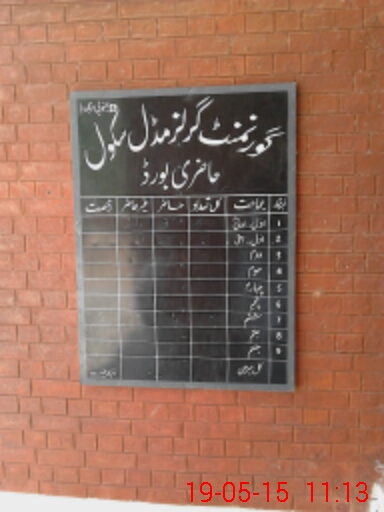 گورنمنٹ گرلز مڈل سکول
حاضری بورڈ
نمبر شمار جماعت کل تعداد حاضر غیر حاضر رخصت
1 اول۔ادنیٰ
2 اول۔اعلیٰ
3 دوم
4 سوم
5 چہارم
6 پنجم
7 ششم
8 ہفتم
9 ہشتم
کل میزان
19-05-15 11:13